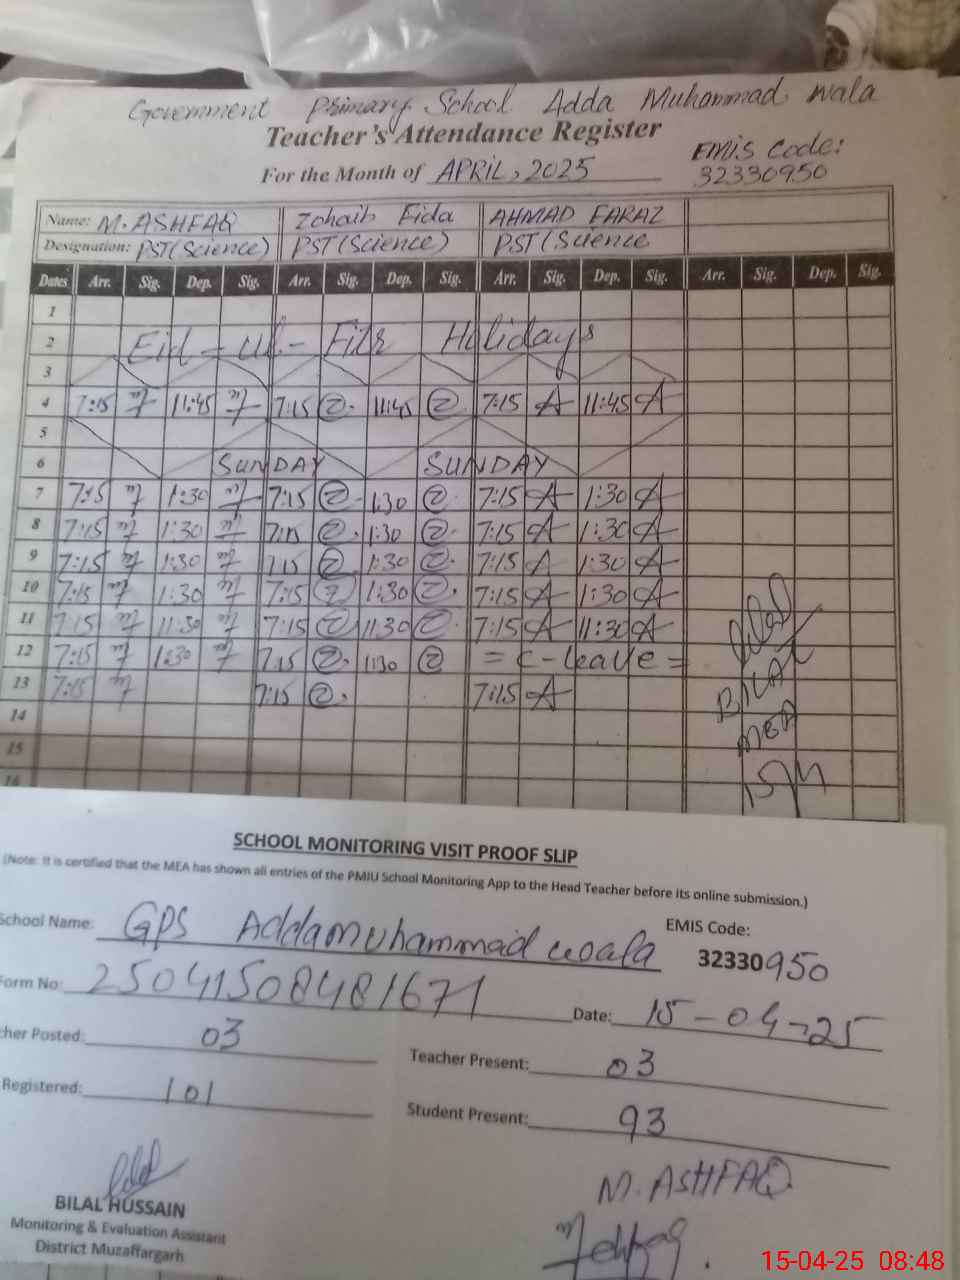 Government Primary School Adda Muhammad wala
Teacher's Attendance Register
EMIS Code:
For the Month of APRIL, 2025
32330950
Name: M. ASHFAQ Zohaib Fida AHMAD FARAZ
Designation: PST (Science) PST (Science) PST (Science
Dates Arr. Sig. Dep. Sig. Arr. Sig. Dep. Sig. Arr. Sig. Dep. Sig. Arr. Sig. Dep. Sig.
1
2 Eid-ul-Fitr Holidays
3
4 7:15 11:45 7:15 2 11:45 2 7:15 A 11:45 A
5
6 SUNDAY SUNDAY
7 7:15 1:30 7:15 2 1:30 2 7:15 A 1:30 A
8 7:15 1:30 7:15 2 1:30 2 7:15 A 1:30 A
9 7:15 1:30 7:15 2 1:30 2 7:15 A 1:30 A
10 7:15 1:30 7:15 2 1:30 2 7:15 A 1:30 A
11 7:15 11:30 7:15 2 11:30 2 7:15 A 11:30 A
12 7:15 1:30 7:15 2 1:30 2 = C-Leave =
13 7:15 7:15 2 7:15 A
14
15
16
Bilal
BILAL
MEA
15/4
SCHOOL MONITORING VISIT PROOF SLIP
(Note: It is certified that the MEA has shown all entries of the PMIU School Monitoring App to the Head Teacher before its online submission.)
School Name: GPS Addamuhammad woala EMIS Code:
32330950
Form No: 25041508481671 Date: 15-04-25
cher Posted: 03 Teacher Present: 03
Registered: 101 Student Present: 93
M. ASHFAQ
BILAL HUSSAIN
Monitoring & Evaluation Assistant
District Muzaffargarh
15-04-25 08:48